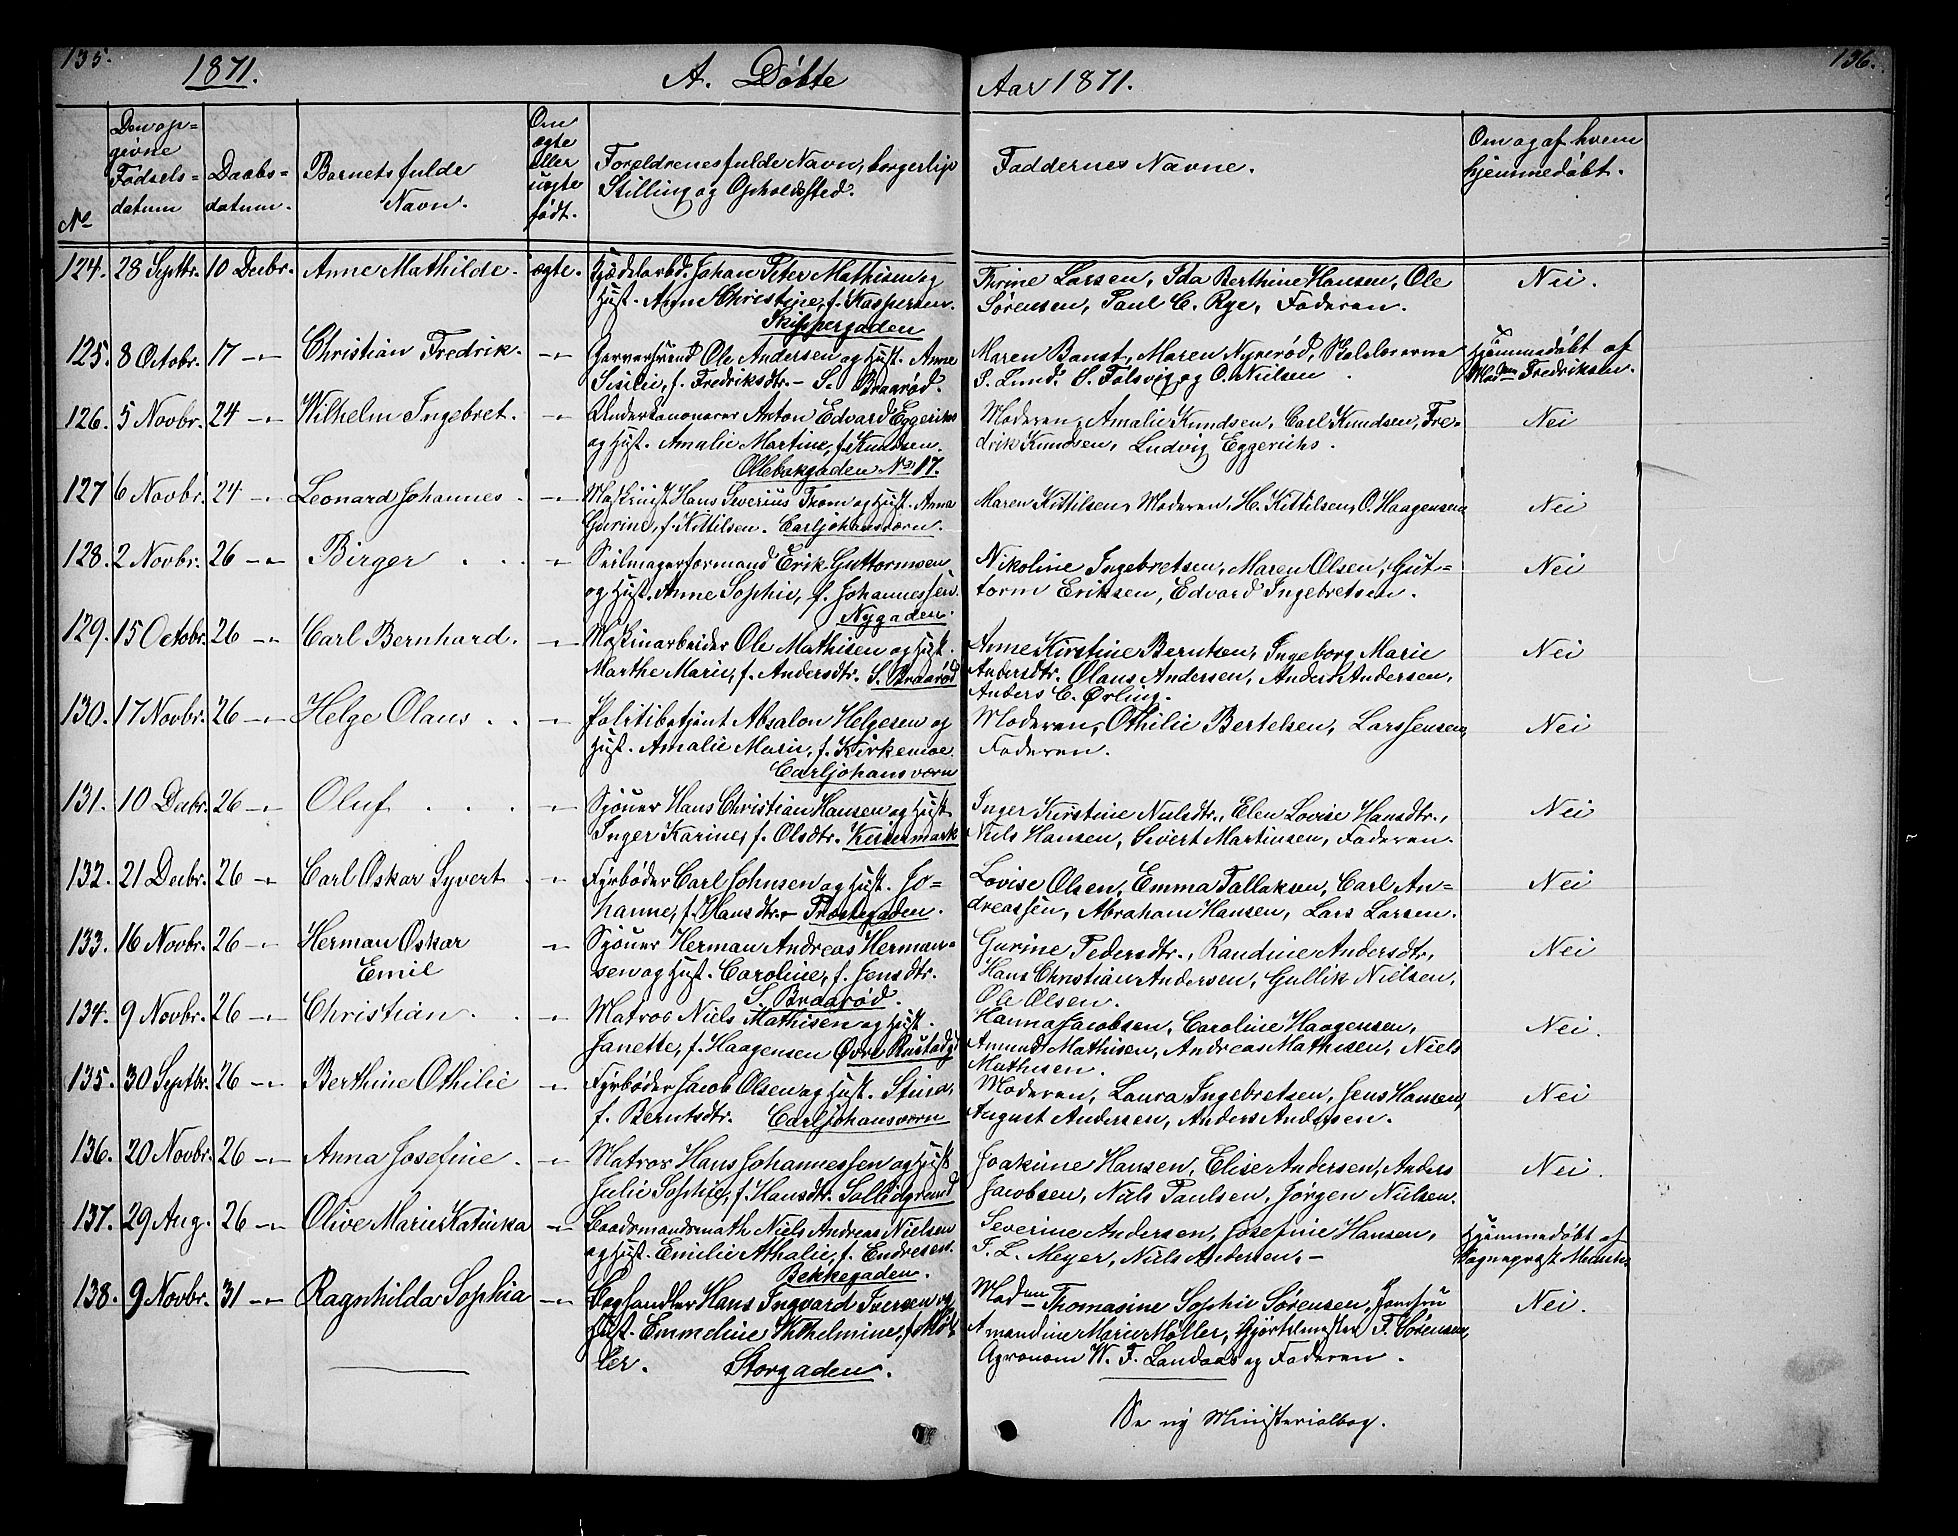 135.
1871.
A. Döbte
Aar 1871.
136.
No
Den op-
givne
Fødsels-
datum
Daabs-
datum.
Barnets fulde
Navn.
Om
ægte
eller
uægte
født.
Forældrenes fulde Navn, borgerlige
Stilling og Opholdssted.
Faddernes Navne.
Om og af hvem
hjemmedøbt.
124. 28 Septbr. 10 Decbr. Anne Mathilde. ægte. Johan Peter Mathisen og
Hust. Anne Christine, f. Kaspersen.
Skippergaden
Thrine Larsen, Ida Berthine Hansen, Ole
Sørensen, Paul C. Rye, Faderen.
Nei.
125. 8 Octobr. 17 -"- Christian Fredrik. -"- Garversvend Ole Andersen og Hust. Anne
Sisilie, f. Fredriksdtr. - S. Braarød.
Maren Banst, Maren Nyrerød, Skoleleererne
S. Lund, S. Falsvig og O. Nielsen.
Hjemmedøbt af
Madm Fredriksen.
126. 5 Novbr. 24 -"- Wilhelm Ingebret. -"- Underkanoneer Anton Edvard Eggerichs
og Hust. Amalie Martine, f. Knudsen.
Ollebakgaden No 17.
Moderen, Amalie Knudsen, Carl Knudsen, Fre-
drik Knudsen, Ludvig Eggerichs.
Nei
127 6 Novbr. 24 -"- Leonard Johannes. -"- Maskinist Hans Severius Trom og Hust. Anna
Gurine, f. Kittilsen. Carljohansværn.
Maren Kittilsen, Moderen, H. Kittilsen, O. Haagensen
Nei
128. 2 Novbr. 26 -"- Birger . . . -"- Seilmagerformand Erik Guttormsen
og Hust. Anne Sophie, f. Johannessen.
Nygaden.
Nikoline Ingebretsen, Maren Olsen, Gut-
torm Eriksen, Edvard Ingebretsen.
Nei
129. 15 Octobr. 26 -"- Carl Bernhard. -"- Maskinarbeider Ole Mathisen og Hust.
Marthe Marie, f. Andersdtr. S. Braarød
Anne Kirstine Berntsen, Ingeborg Marie
Andersdtr. Olaus Andersen, Anders Andersen,
Anders C. Ørling.
Nei
130. 17 Novbr. 26 -"- Helge Olaus . . -"- Politibetjent Absalon Helgesen og
Hust. Amalie Marie, f. Kirkemoe.
Carljohansværn
Moderen, Othilie Bertelsen, Lars Jensen,
Faderen.
Nei
131. 10 Decbr. 26 -"- Oluf . . . -"- Sjöuer Hans Christian Hansen og Hust.
Inger Karine, f. Olsdtr. Keisermark
Inger Kirstine Nielsdtr., Elen Lovise Hansdtr.,
Niels Hansen, Sivert Martinsen, Faderen.
Nei
132. 21 Decbr. 26 -"- Carl Oskar Syvert . -"- Fyrbøder Carl Johnsen og Hust. Jo-
hanne, f. Hansdtr. - Præstegaden.
Lovise Olsen, Emma Tallaksen, Carl An-
dreassen, Abraham Hansen, Lars Larsen.
Nei
133. 16 Novbr. 26 -"- Herman Oskar
Emil
-"- Sjöuer Herman Andreas Herman-
sen og Hust. Caroline, f. Jensdtr.
S. Braarød.
Gurine Pedersdtr., Randine Andersdtr,
Hans Christian Andersen, Gullik Nielsen,
Ole Olsen.
Nei
134. 9 Novbr. 26 -"- Christian. . -"- Matros Niels Mathisen og Hust.
Janette, f. Haagensen Øvre Rustadgd
Hanna Jacobsen, Caroline Haagensen,
Amund Mathisen, Andreas Mathisen, Niels
Mathisen.
Nei.
135. 30 Septbr. 26 -"- Berthine Othilie -"- Fyrbøder Jacob Olsen og Hust. Stina,
f. Berntsdtr. Carljohansværn
Moderen, Laura Ingebretsen, Jens Hansen,
August Andersen, Anders Andersen.
Nei
136. 20 Novbr. 26 -"- Anna Josefine. -"- Matros Hans Johannessen og Hust
Julie Sophie, f. Hansdtr. Solliegrund
Joakime Hansen, Elise Andersen, Anders
Jacobsen, Niels Paulsen, Jørgen Nielsen.
Nei.
137. 29 Aug. 26 -"- Olive Marie Katinka -"- Baadsmandsmath Niels Andreas Nielsen
og Hust. Emilie Athalie, f. Endresen.
Bekkegaden.
Severine Andersen, Josefine Hansen,
F. L. Meyer, Niels Andersen. -
Hjemmedøbt af
Sogneprest
138. 9 Novbr. 31 -"- Ragnhilda Sophia -"- Boghandler Hans Ingvard Iversen og
Hust. Emmeline Wilhelmine, f. Møl-
ler. Storgaden.
Madm Thomasine Sophie Sørensen, Jomfru
Amandine Marie Møller, Gjörtelmester F. Sørensen,
Agronom W. F. Landaas og Faderen.
Nei.
Se ny Ministerialbog.